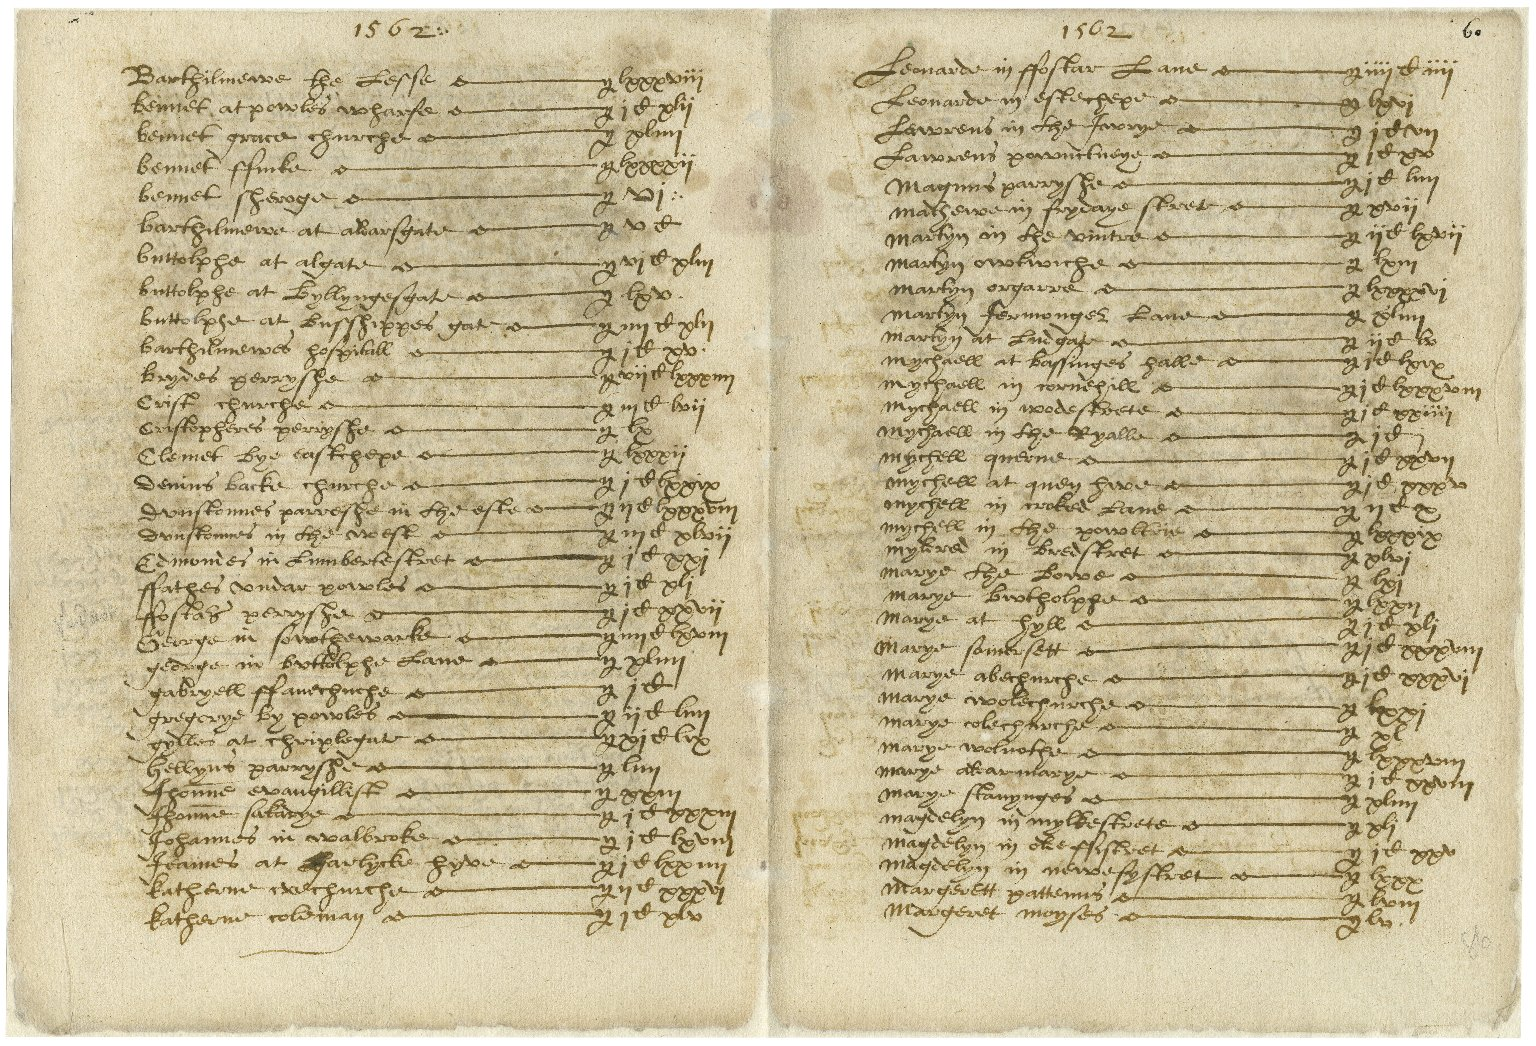 1562
Barthilmewe the Lesse lxxxviij
bennet at powles wharfe j C xlij
bennet grace churche xliiij
bennet ffinke lxxxxij
bennet sheroge vj
barthilmewe at alldarsgate v C
buttolphe at algate vj C xliij
buttolphe at Byllyngesgate lxv
buttolphe at busshippes gate iiij C xlij
barthilmewes hospitall j C xv
brydes perryshe vij C lxxxiiij
Crist churche iij C lvij
Cristopheres perryshe lx
Clemet bye eastchepe lxxxij
Denius backe churche j C lxxix
Dunstonnes parreshe in the este ij C lxxxviij
Dunstonnes in the west iij C xlvij
Edmondes in Lumberte stret j C xxj
ffathes undar powles j C xlj
ffostars perryshe j C xxvij
George in sowthewarke iiij C lxviij
george in buttolphe Lane xliiij
gabryell ffanechuche j C
gregorye by powles ij C liiij
gylles at chriplegate xj C lix
Hellyns parryshe liiij
Jhonne evangillist xxiij
Jhonne sakarye j C xxxiij
Johannes in walbroke j C lxviij
Jeames at Garlycke hyve j C lxxiiij
katherne crechurche ij C xxxvj
katherne coleman j C xlv
1562 6.
Leonarde in ffostar Lane iiij C iiij
Leonarde in estechepe lxvj
Lawrens in the Jwrye j C vij
Lawrens powuntneye j C xv
Magnus parryshe j C liiij
Mathewe in frydaye strete xvij
Martyn in the vintre ij C lxvij
Martyn owtwiche lxiij
Martyn orgarre lxxxxvj
Martyn Jermonger Lane xliiij
Martyn at Ludgate ij C lv
Mychaell at bassinges halle j C lxix
Mychaell in cornehill j C lxxxviij
Mychaell in wodestrete j C xxiiij
Mychaell in the Ryalle j C
Mychell querne j C xxvij
Mychell at quen hive j C xxxv
Mychell in croked Lane ij C x
Mychell in the powltrie lxxxix
Myldred in Bredstret xlvj
Marye the Bowe lxj
Marye buthollphe lxxij
Marye at hyll j C xlj
Marye somersett j C xxxviij
Marye abechurche j C xxxvj
Marye wolechurche lxxxj
Marye colechurche xl
Marye wolnothe lxxxviij
Marye aldarmarye j C xxviij
Marye stanynges xliiij
Magdelyn in mylkestrete xlj
Magdelyn in olde ffistret j C xxv
Magdelyn in newefystret lxxx
Margerett pattenns lxviij
Margeret moyses lv